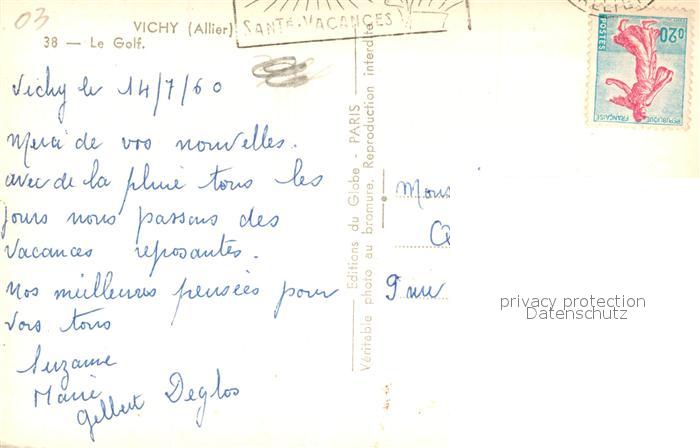 03
VICHY (Allier)
38 — Le Golf.
SANTÉ-VACANCES
Vichy le 14/7/60
Merci de vos nouvelles.
avec de la pluie tous les
jours nous passons des
vacances reposantes.
Nos meilleures pensées pour
vous tous
Suzanne
Marie
Gilbert Deglos
Editions du Globe - PARIS
Véritable photo au bromure. Reproduction interdite
0,20
POSTES
REPUBLIQUE FRANÇAISE
Mons
9 rue
privacy protection
Datenschutz